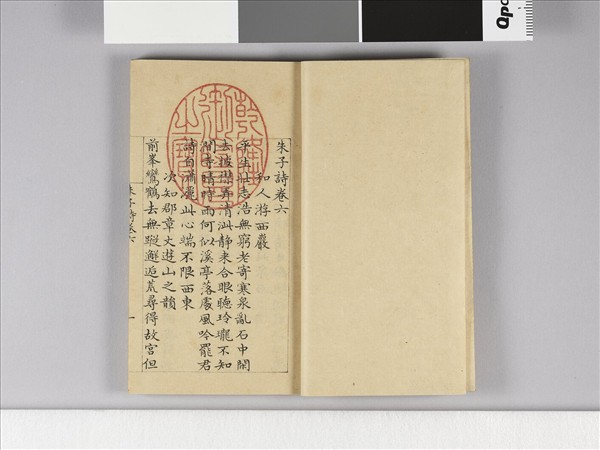 朱子詩卷六
和人游西巖
平生壯志浩無窮老寄寒泉亂石中閑
去披襟弄清泚静來合眼聽玲瓏不知
澗寺晴時雨何似溪亭落處風吟罷君
詩自瀟灑此心端不限西東
次知郡章丈遊山之韻
前峯鸞鶴去無蹤邂逅荒尋得故宮但
朱子詩卷六
一
乾隆御覽之寶